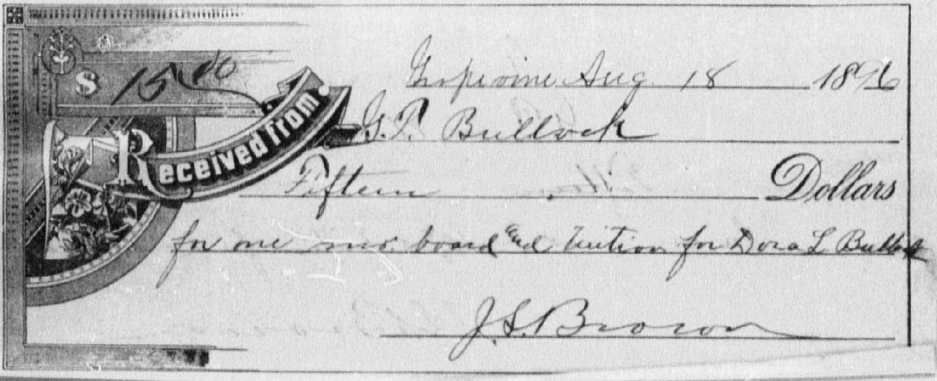 $ 15.00
Grapevine Aug. 18 1896
Received from G. T. Bullock
Fifteen Dollars
for one mo. board and tuition for Dora L Bullock
J. S. Brown